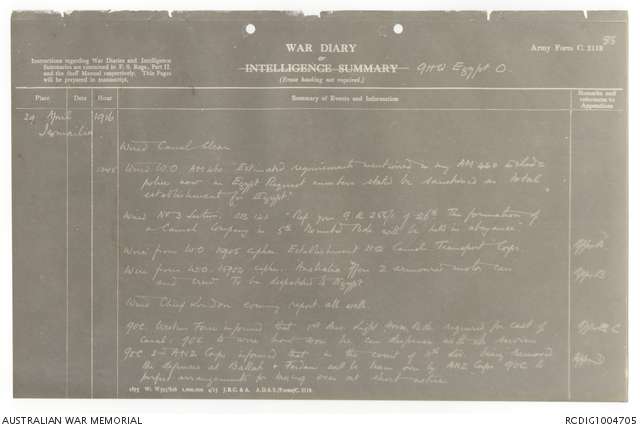 95
WAR DIARY
or
INTELLIGENCE SUMMARY
(Erase heading not required.)
G.H.Q. Egypt O.
Army Form C. 2118
Instructions regarding War Diaries and Intelligence
Summaries are contained in F. S. Regs., Part II.
and the Staff Manual respectively. Title Pages
will be prepared in manuscript.
Place
Date
Hour
Summary of Events and Information
Remarks and
references to
Appendices
29 April 1916
Ismailia
Wired Canal Clear
Wired W.O. "Estimated requirements mentioned in my
police now in Egypt Request numbers stated be sanctioned as total
establishment for Egypt"
Wired No 3 Section "Ref your of 26th The formation of
a Camel Company in 5th Mounted Bde will be held in abeyance"
Wire from W.O. cipher. Establishment Camel Transport Corps
Appx A
Wire from W.O. cipher. Australia offer 2 armoured motor cars
and crew To be despatched to Egypt
Appx B
Wired Chief London evening report all well.
GOC Western Force informed that 1st Aus. Light Horse Bde required for east of
Canal: GOC to wire how soon he can dispense with its services
C
GOC 2nd ANZ Corps informed that in the event of 11th Div. being removed
the defences at Ballah & Ferdan will be taken over by ANZ Corps GOC to
perfect arrangements for taking over at short notice
Appx D
AUSTRALIAN WAR MEMORIAL
RCDIG1004705